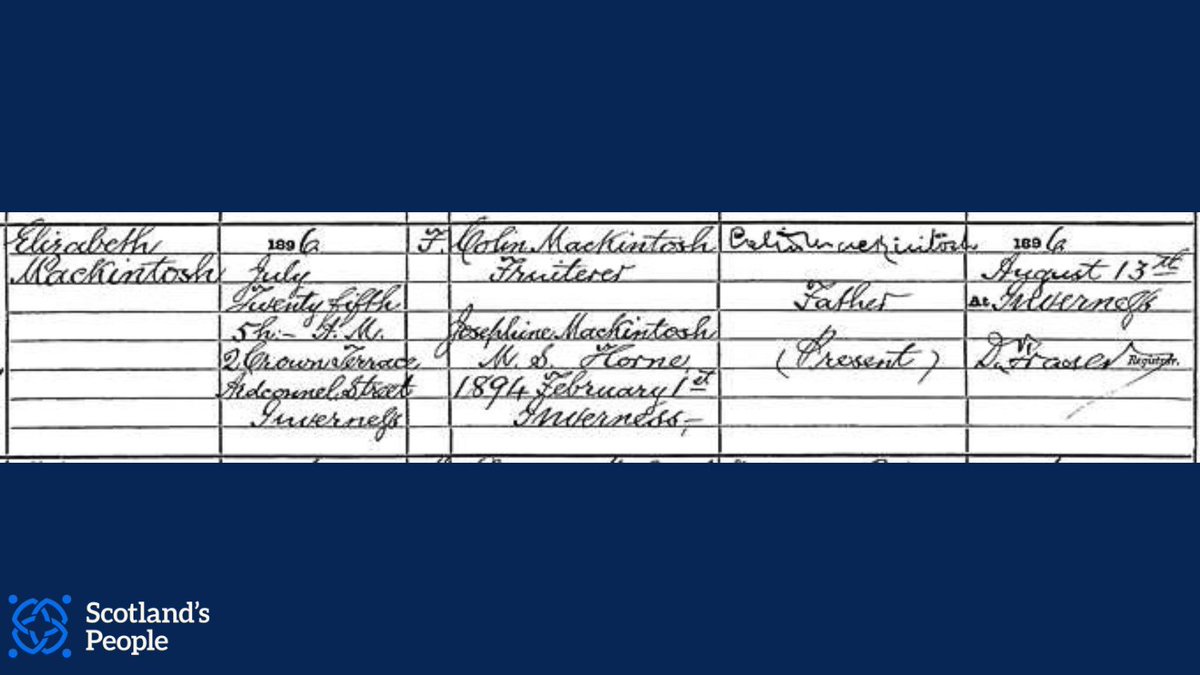 Elizabeth
Mackintosh
1896
July
Twenty fifth
5h.– A.M.
2 Crown Terrace
Ardconnel Street
Inverness
F.
Colin Mackintosh
Fruiterer
Josephine Mackintosh
M. S. Horne
1894 February 1st
Inverness,–
Colin Mackintosh
Father
(Present)
1896
August 13th
At Inverness
Dv. Fraser Registrar.
Scotland's
People